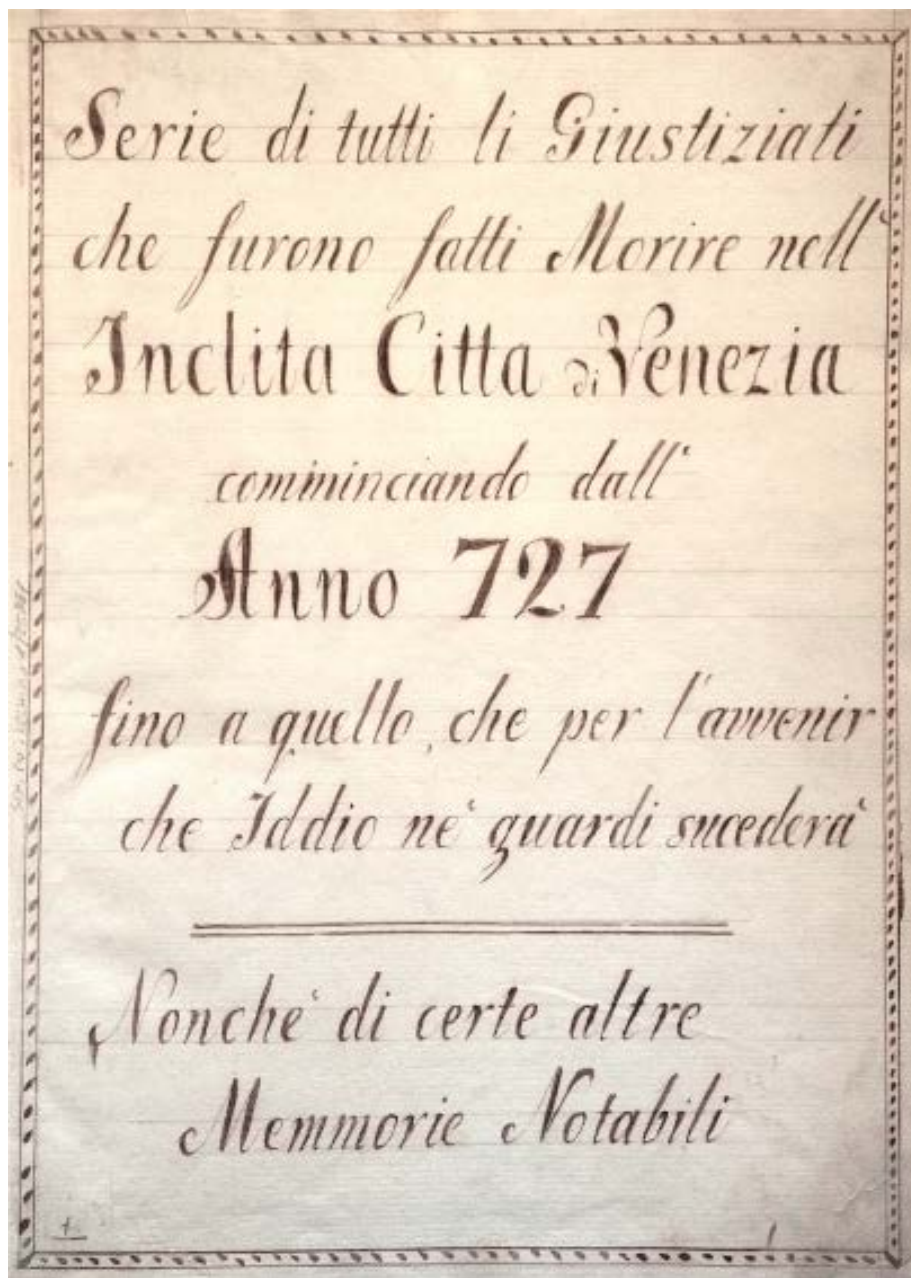 Serie di tutti li Giustiziati
che furono fatti Morire nell'
Inclita Citta di Venezia
comminciando dall'
Anno 727
fino a quello, che per l'avvenir
che Iddio ne' guardi sucederà
Nonche' di certe altre
Memmorie Notabili